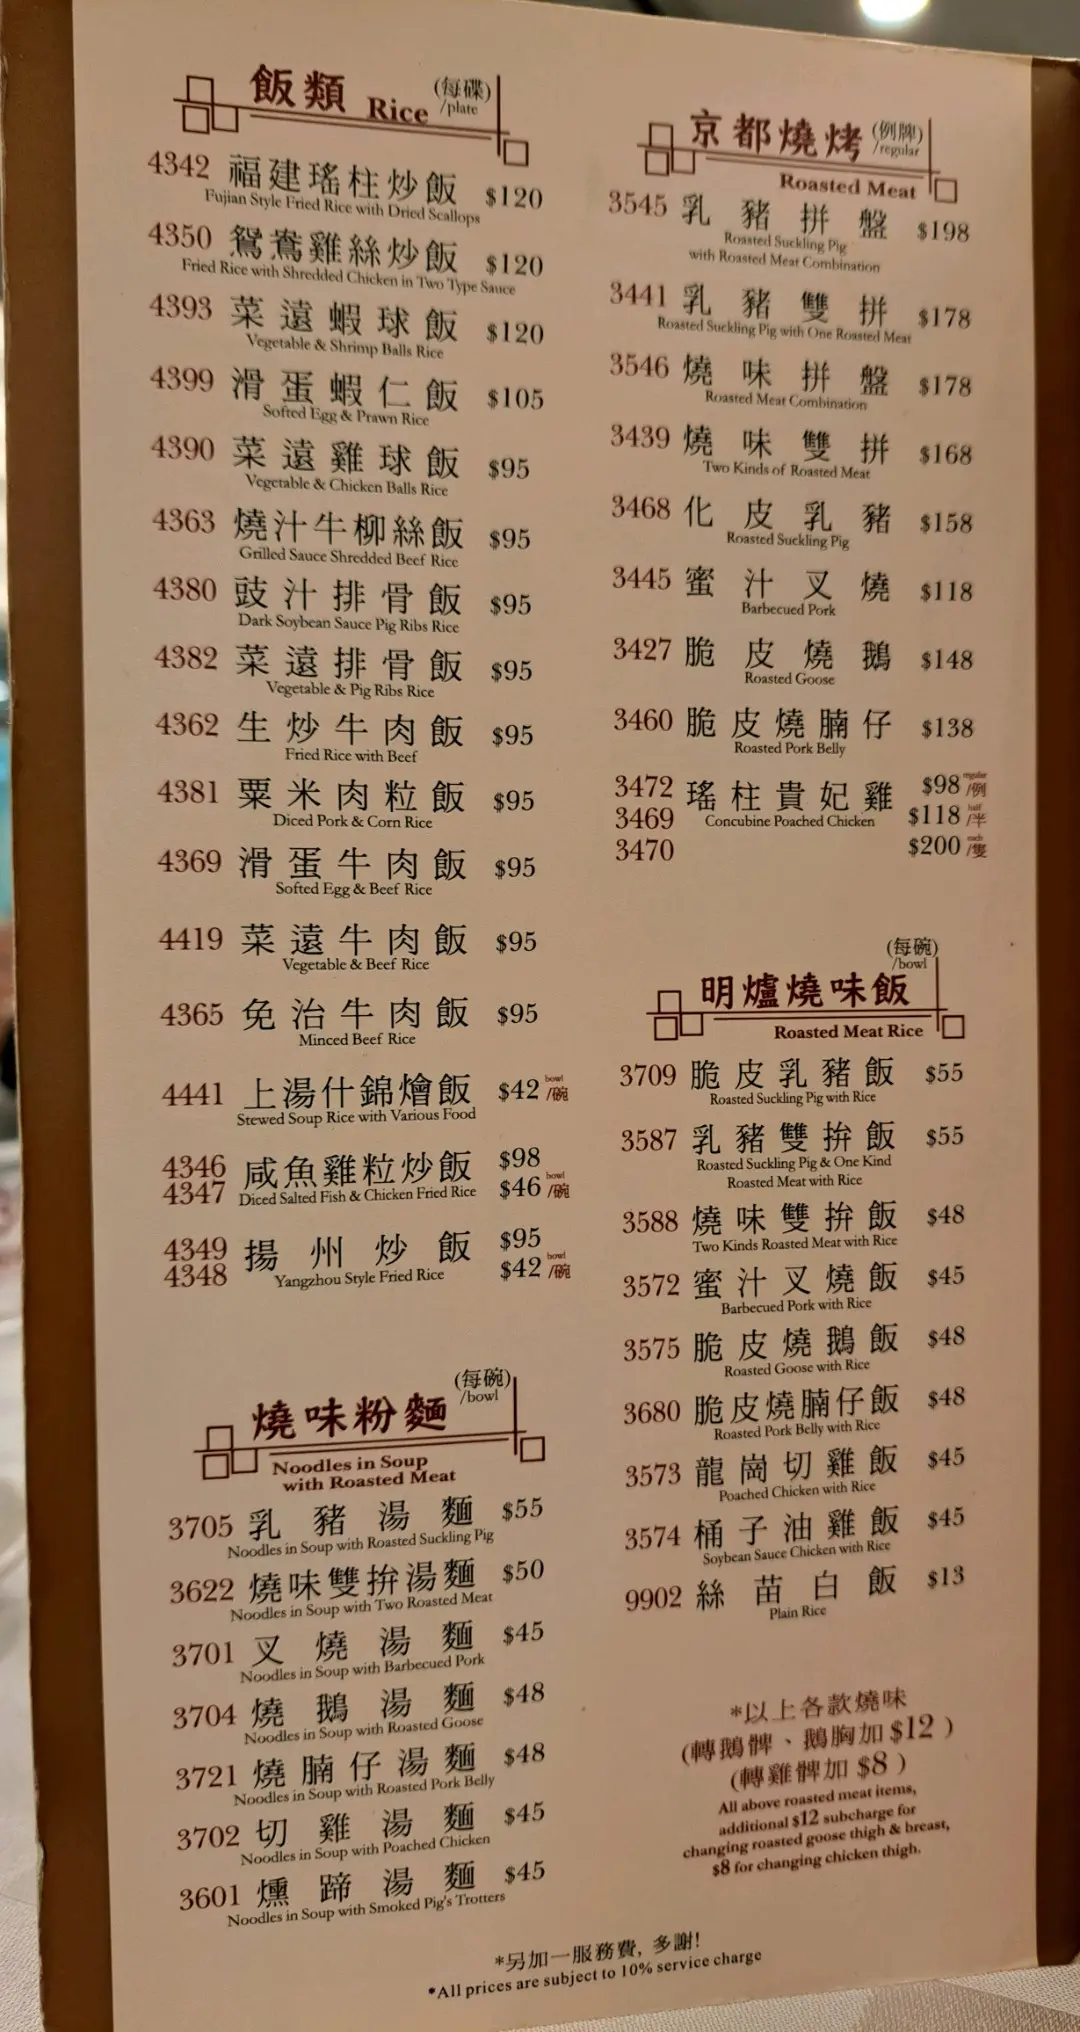 飯類 Rice (每碟) /plate
4342 福建瑤柱炒飯 $120
Fujian Style Fried Rice with Dried Scallops
4350 鴛鴦雞絲炒飯 $120
Fried Rice with Shredded Chicken in Two Type Sauce
4393 菜遠蝦球飯 $120
Vegetable & Shrimp Balls Rice
4399 滑蛋蝦仁飯 $105
Softed Egg & Prawn Rice
4390 菜遠雞球飯 $95
Vegetable & Chicken Balls Rice
4363 燒汁牛柳絲飯 $95
Grilled Sauce Shredded Beef Rice
4380 豉汁排骨飯 $95
Dark Soybean Sauce Pig Ribs Rice
4382 菜遠排骨飯 $95
Vegetable & Pig Ribs Rice
4362 生炒牛肉飯 $95
Fried Rice with Beef
4381 粟米肉粒飯 $95
Diced Pork & Corn Rice
4369 滑蛋牛肉飯 $95
Softed Egg & Beef Rice
4419 菜遠牛肉飯 $95
Vegetable & Beef Rice
4365 免治牛肉飯 $95
Minced Beef Rice
4441 上湯什錦燴飯 $42 bowl/碗
Stewed Soup Rice with Various Food
4346 咸魚雞粒炒飯 $98
4347 Diced Salted Fish & Chicken Fried Rice $46 bowl/碗
4349 揚州炒飯 $95
4348 Yangzhou Style Fried Rice $42 bowl/碗
燒味粉麵 (每碗) /bowl
Noodles in Soup
with Roasted Meat
3705 乳豬湯麵 $55
Noodles in Soup with Roasted Suckling Pig
3622 燒味雙拚湯麵 $50
Noodles in Soup with Two Roasted Meat
3701 叉燒湯麵 $45
Noodles in Soup with Barbecued Pork
3704 燒鵝湯麵 $48
Noodles in Soup with Roasted Goose
3721 燒腩仔湯麵 $48
Noodles in Soup with Roasted Pork Belly
3702 切雞湯麵 $45
Noodles in Soup with Poached Chicken
3601 燻蹄湯麵 $45
Noodles in Soup with Smoked Pig's Trotters
京都燒烤 (例牌) /regular
Roasted Meat
3545 乳豬拼盤 $198
Roasted Suckling Pig
with Roasted Meat Combination
3441 乳豬雙拼 $178
Roasted Suckling Pig with One Roasted Meat
3546 燒味拼盤 $178
Roasted Meat Combination
3439 燒味雙拼 $168
Two Kinds of Roasted Meat
3468 化皮乳豬 $158
Roasted Suckling Pig
3445 蜜汁叉燒 $118
Barbecued Pork
3427 脆皮燒鵝 $148
Roasted Goose
3460 脆皮燒腩仔 $138
Roasted Pork Belly
3472 瑤柱貴妃雞 $98 regular/例
3469 Concubine Poached Chicken $118 half/半
3470 $200 each/隻
(每碗) /bowl
明爐燒味飯
Roasted Meat Rice
3709 脆皮乳豬飯 $55
Roasted Suckling Pig with Rice
3587 乳豬雙拚飯 $55
Roasted Suckling Pig & One Kind
Roasted Meat with Rice
3588 燒味雙拚飯 $48
Two Kinds Roasted Meat with Rice
3572 蜜汁叉燒飯 $45
Barbecued Pork with Rice
3575 脆皮燒鵝飯 $48
Roasted Goose with Rice
3680 脆皮燒腩仔飯 $48
Roasted Pork Belly with Rice
3573 龍崗切雞飯 $45
Poached Chicken with Rice
3574 桶子油雞飯 $45
Soybean Sauce Chicken with Rice
9902 絲苗白飯 $13
Plain Rice
*以上各款燒味
(轉鵝髀、鵝胸加 $12 )
(轉雞髀加 $8 )
All above roasted meat items,
additional $12 subcharge for
changing roasted goose thigh & breast,
$8 for changing chicken thigh.
*另加一服務費, 多謝!
*All prices are subject to 10% service charge